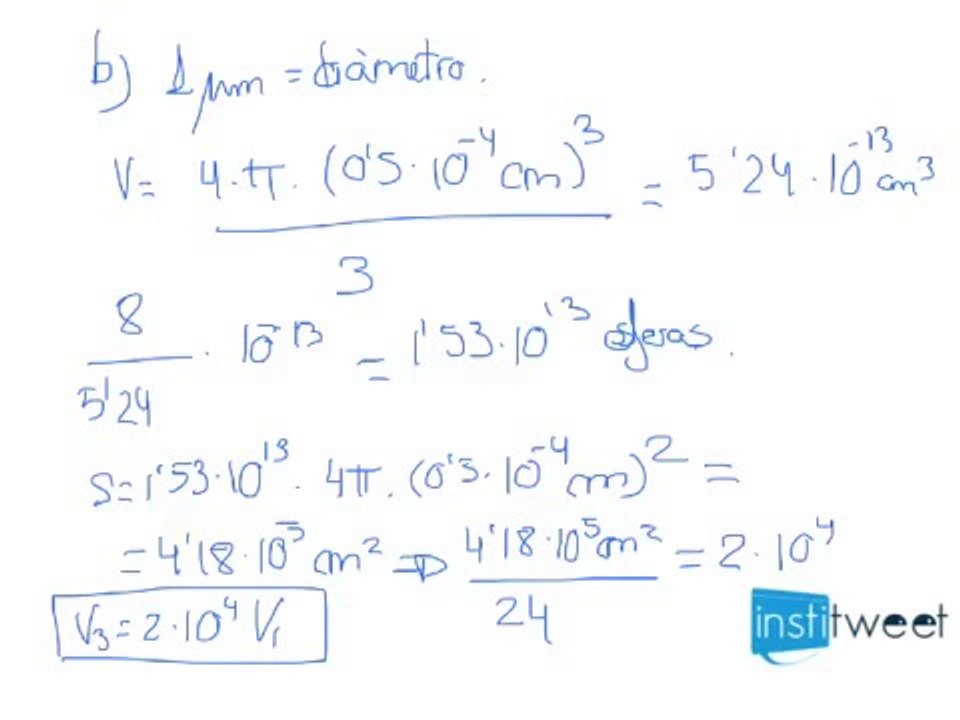 b) 1 μm = diámetro.
V = 4·π·(0'5·10⁻⁴ cm)³ / 3 = 5'24·10⁻¹³ cm³
8 / 5'24 · 10⁻¹³ = 1'53·10¹³ esferas.
S = 1'53·10¹³ · 4π·(0'5·10⁻⁴ cm)² =
= 4'18·10⁵ cm² ⇒ 4'18·10⁵ cm² / 24 = 2·10⁴
V₃ = 2·10⁴ V₁
institweet